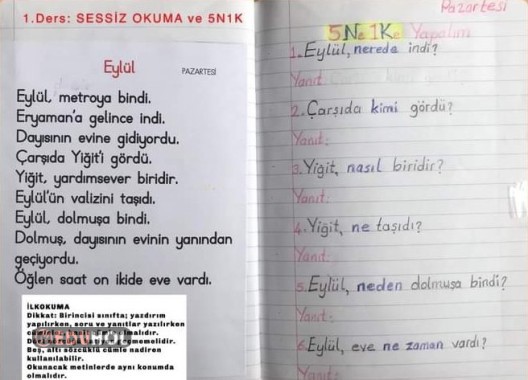 1.Ders: SESSİZ OKUMA ve 5N1K
Eylül
PAZARTESİ
Eylül, metroya bindi.
Eryaman'a gelince indi.
Dayısının evine gidiyordu.
Çarşıda Yiğit'i gördü.
Yiğit, yardımsever biridir.
Eylül'ün valizini taşıdı.
Eylül, dolmuşa bindi.
Dolmuş, dayısının evinin yanından
geçiyordu.
Öğlen saat on ikide eve vardı.
İLKOKUMA
Dikkat: Birinci sınıfta; yazdırım
yapılırken, soru ve yanıtlar yazılırken
Beş, altı sözcüklü cümle nadiren
kullanılabilir.
Okunacak metinlerde aynı konumda
olmalıdır.
Pazartesi
5Ne 1Ke Yapalım
1.Eylül, nerede indi?
Yanıt:
2.Çarşıda kimi gördü?
Yanıt:
3.Yiğit, nasıl biridir?
Yanıt:
4.Yiğit, ne taşıdı?
Yanıt:
5.Eylül, neden dolmuşa bindi?
Yanıt:
6.Eylül, eve ne zaman vardı?
Yanıt: